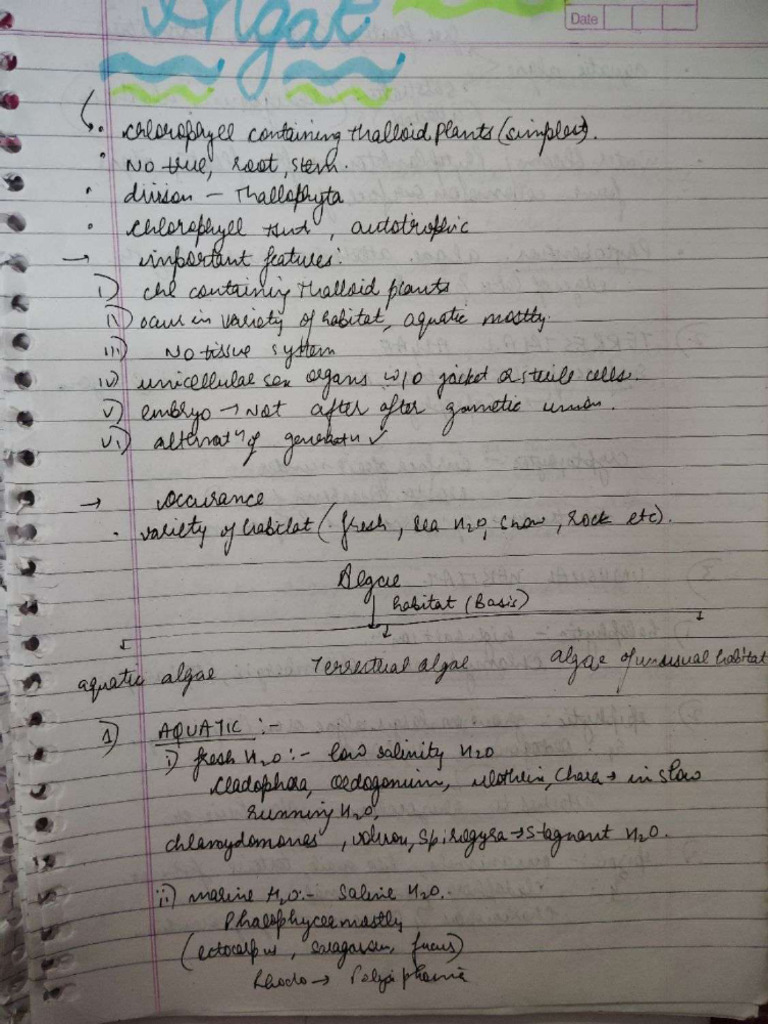 Algae
Date
• chlorophyll containing Thalloid plants (simplest).
• No true, root, stem.
• division - Thallophyta
• chlorophyll , autotrophic
→ important features:
i) chl containing Thalloid plants
ii) occur in variety of habitat, aquatic mostly.
iii) No tissue system
iv) unicellular sex organs w/o jacket of sterile cells.
v) embryo → Not after after gametic union.
vi) alternatn of generatn ✓
→ occurance
• variety of habitat (fresh, sea H2O, snow, rock etc).
Algae
habitat (Basis)
aquatic algae Terrestrial algae algae of unusual habitat
1) AQUATIC :-
i) fresh H2O :- low salinity H2O
cladophora, oedogonium, ulothrix, chara → in slow
running H2O,
chlamydomonas, volvox, spirogyra → stagnant H2O.
ii) marine H2O :- saline H2O.
Phaeophyceae mostly
(ectocarpus, sargassum, fucus)
Rhodo → Polysiphonia